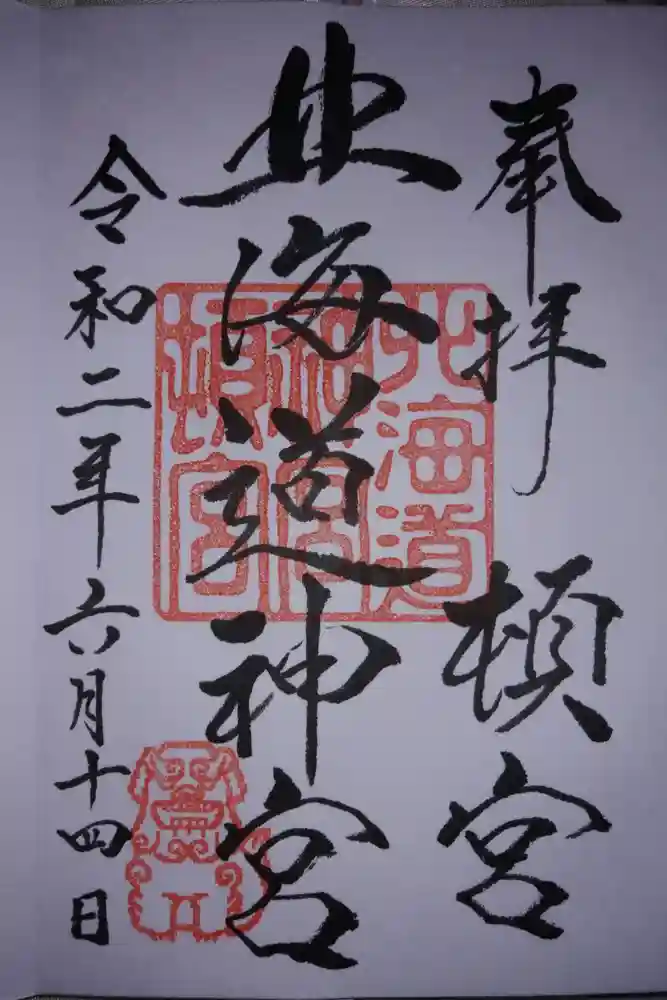 奉拝
頓宮
北海道神宮
北海道
神宮
頓宮
令和二年六月十四日